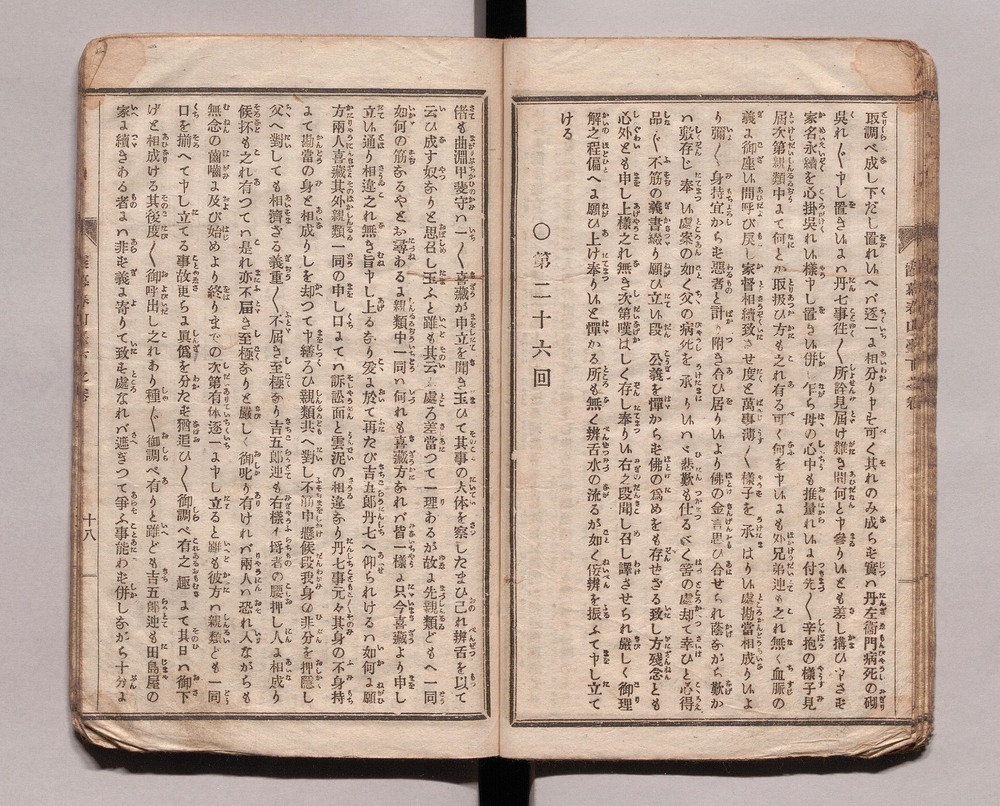 取調べ成し下だし置れいへバ逐一ょ相分り申も可く其れのみ成らも實ハ丹左衞門病死の砌
吳れ〳〵申し置きいょハ丹七事徃〳〵所詮見届け難き間何と申參りいとも差し搆ひ下さも
家名永續を心掛吳れい樣申し置きい併し乍ら母の心中も推量れいょ付先〳〵辛抱の樣子見
届次第親類中ょて何とか取扱ひ方も之れ有る可く何を申いょも外兄弟迚も之れ無く血脈の
義ょ御座い間呼び戻し家督相續致させ度と萬事薄〳〵樣子を承はりい處勘當相成りいょ
り彌〳〵身持宜からも惡者と計り附き合ひ居りいより佛の金言思ひ合せられ蔭あがら歎か
ハ敷存じ奉りい處案の如く父の病死を承りいハヾ悲歎も仕るべく筈の處却つて幸ひと心得
品〳〵不筋の義書綴り願ひ立い段 公義を憚からも佛の爲めをも存せざる致し方殘念とも
心外とも申し上樣之れ無き次第嘆はしく存し奉りい右之段聞し召し譯させられ嚴しく御理
解之程偏へょ願ひ上け奉りいと憚かる所も無く辨舌水の流るが如く佞辨を振ふて申し立て
ける
〇第二十六回
偖も曲淵甲斐守ハ一〳〵喜藏が申立を聞き玉ひて其事の大体を察したまひ己れ辨舌を以て
云ひ成す奴ありと思召し玉ふと雖も其云ふ處ろ差當つて一理あるが故ょ先親類どもへ一同
如何の筋あるやとお尋わるょ親類中一同ハ何れも喜藏方あれバ皆一樣ょ只今喜藏より申し
立い通り相違之れ無き旨申し上るあり爰ょ於て再たび吉五郎丹七へ仰られけるハ如何ょ願
方兩人喜藏其外親類一同の申し口ょてハ訴訟面と雲泥の相違あり丹七事元々其身の不身持
ょて勘當の身と相成りしを却つて申繕ろひ親類共へ對し不筋申懸候段我身の非分を押隱し
父へ對しても相濟ざる義重〳〵不届き至極あり吉五郎迚も右樣ょ壻者の腰押し人ょ相成り
候抔も之れ有つてハ是れ亦不届き至極ありと嚴しく御叱り有けれバ兩人ハ恐れ入ながらも
無念の齒嚙ょ及び始めより終りまでの次第有体逐一ょ申し立ると雖も彼方ハ親類ども一同
口を揃へて申し立てる事故更ちょ眞僞を分たも猶追ひ〳〵御調べ有之趣ょて其日ハ御下
けと相成ける其後度〳〵御呼出し之れあり種〳〵御調べ有りと雖ども吉五郎迚も田島屋の
家ょ續きある者ょハ非も義ょ寄りて致も處なれバ遮きつて爭ふ事能わも併しあがら十分ょ
十八